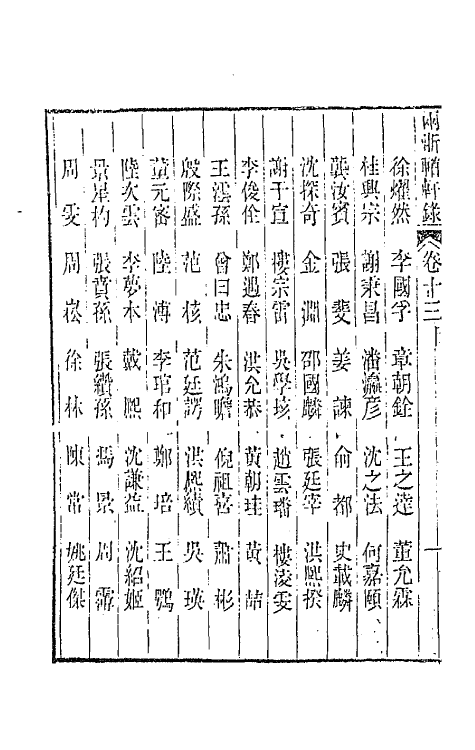 兩浙輶軒錄 卷十三 一
徐燿然 李國字 章朝銓 王之逵 董允霖
桂興宗 謝秉昌 潘瀛彥 沈之法 何嘉頤
龔汝賓 張斐 姜諫 俞都 史載麟
沈探奇 金淵 邵國麟 張廷宰 洪熙揆
謝于宣 樓宗雷 吳學垓 趙雲璠 樓淩雯
李俊佺 鄭遇春 洪允恭 黃朝珪 黃喆
王澐孫 曾曰忠 朱鴻瞻 倪祖喜 蕭彬
殷際盛 范核 范廷諤 洪熙績 吳瑛
董元密 陸溥 李琯和 鄭培 王鶚
陸次雲 李夢本 戴熙 沈謙益 沈紹姬
景星杓 張賁孫 張纘孫 馮景 周霱
周雯 周崧 徐林 陳常 姚廷傑